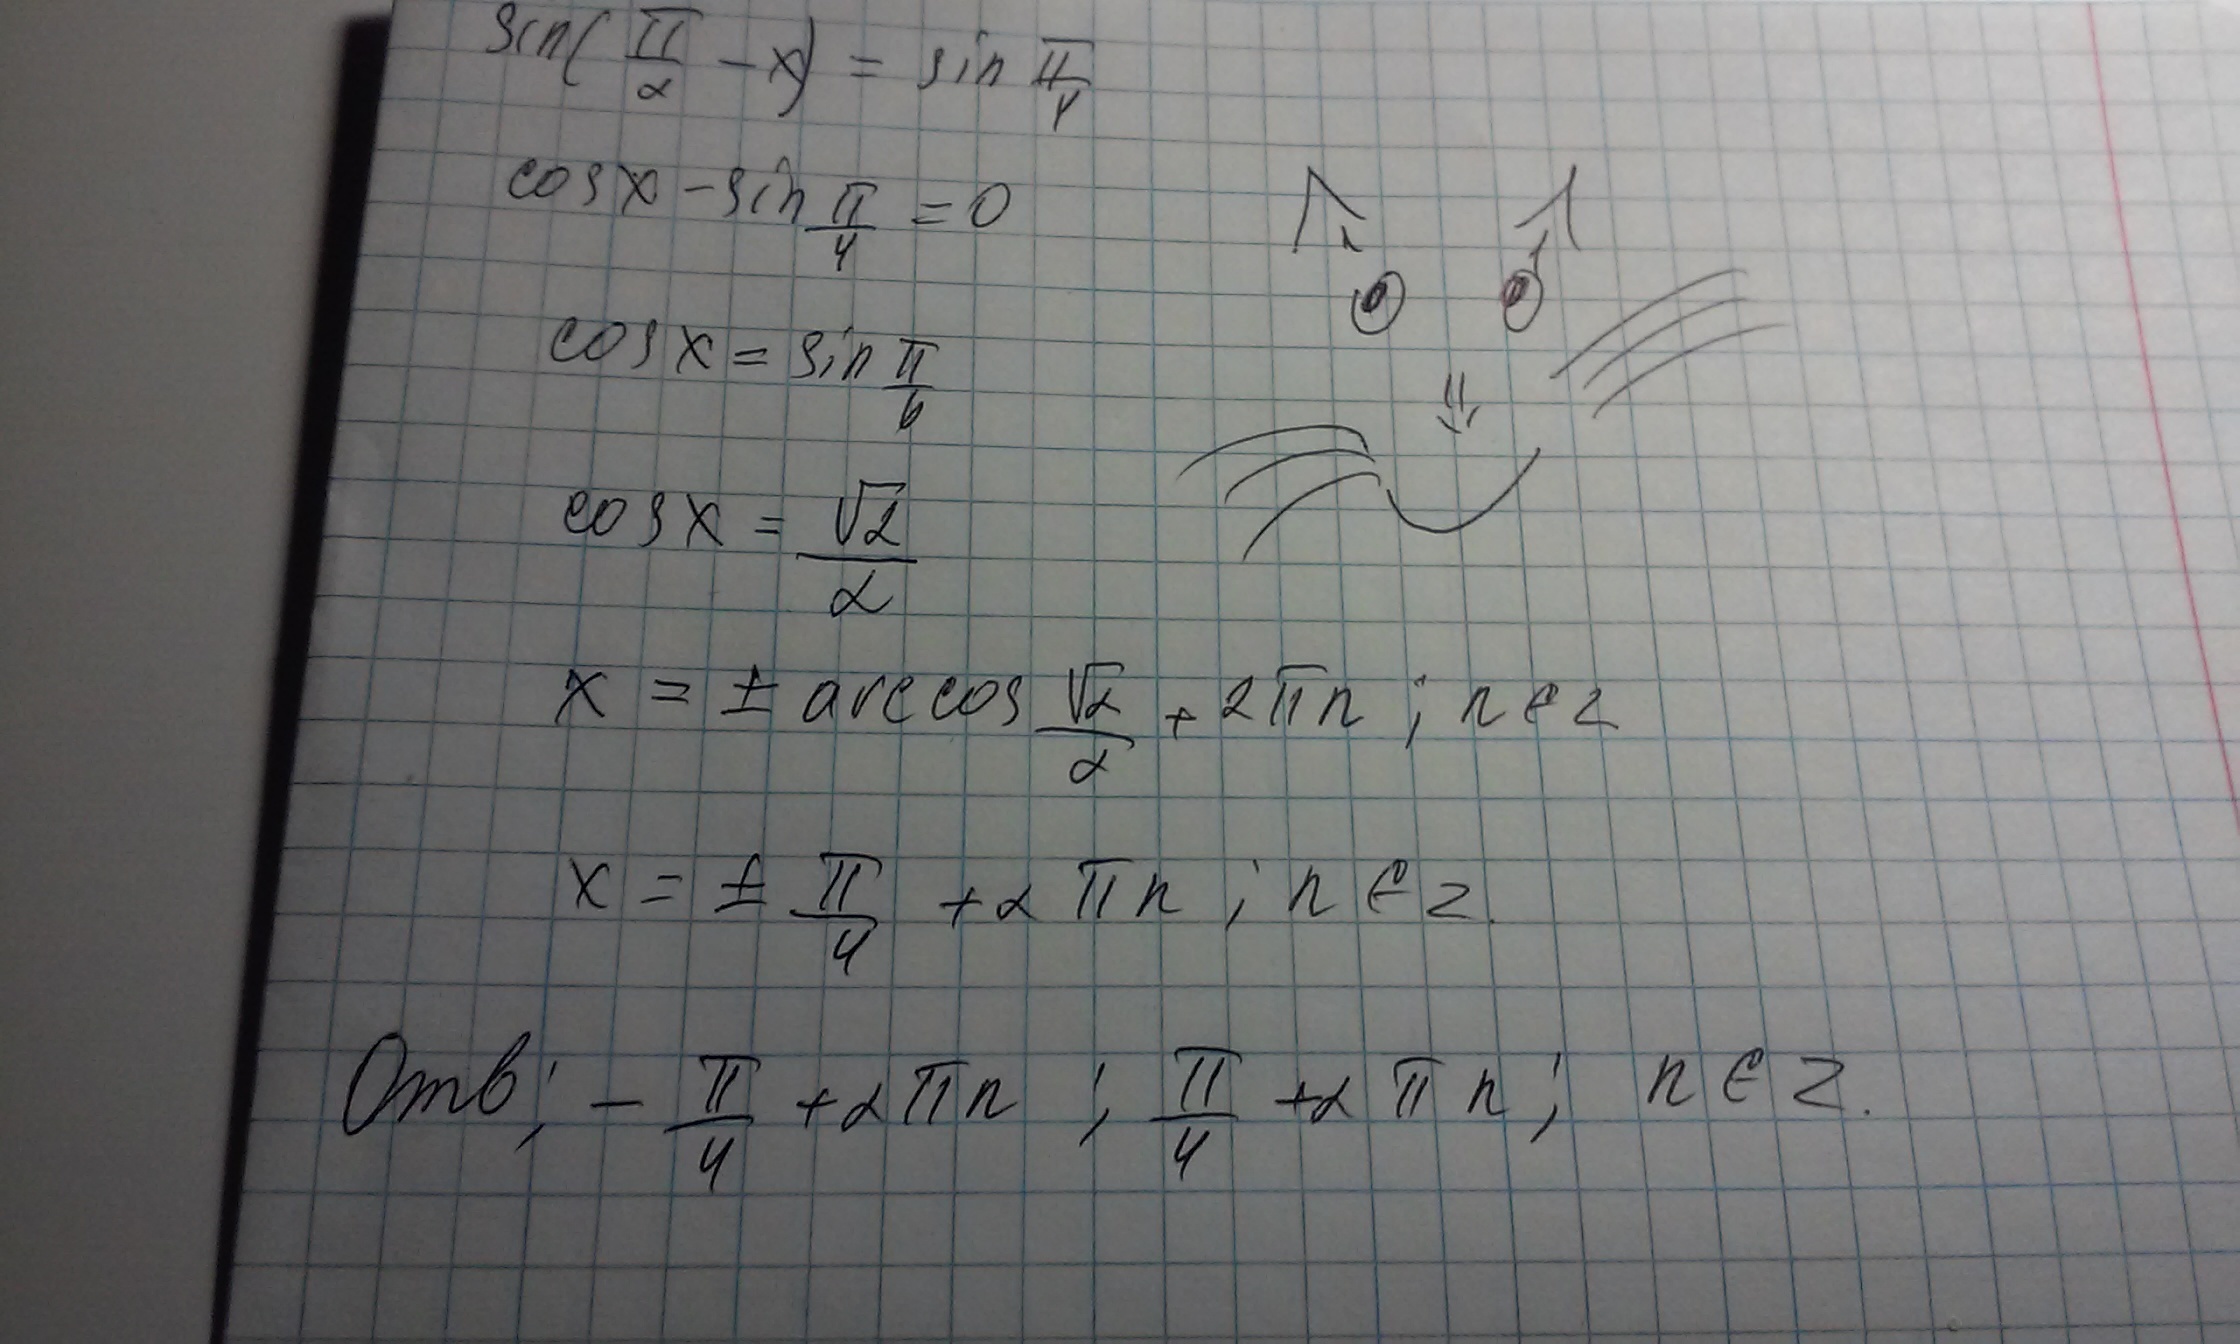 sin(π/2 - x) = sin π/4
cos x - sin π/4 = 0
cos x = sin π/6
cos x = √2/2
x = ± arccos √2/2 + 2πn ; n ∈ z
x = ± π/4 + 2πn ; n ∈ z.
Отв: - π/4 + 2πn ; π/4 + 2πn ; n ∈ z.